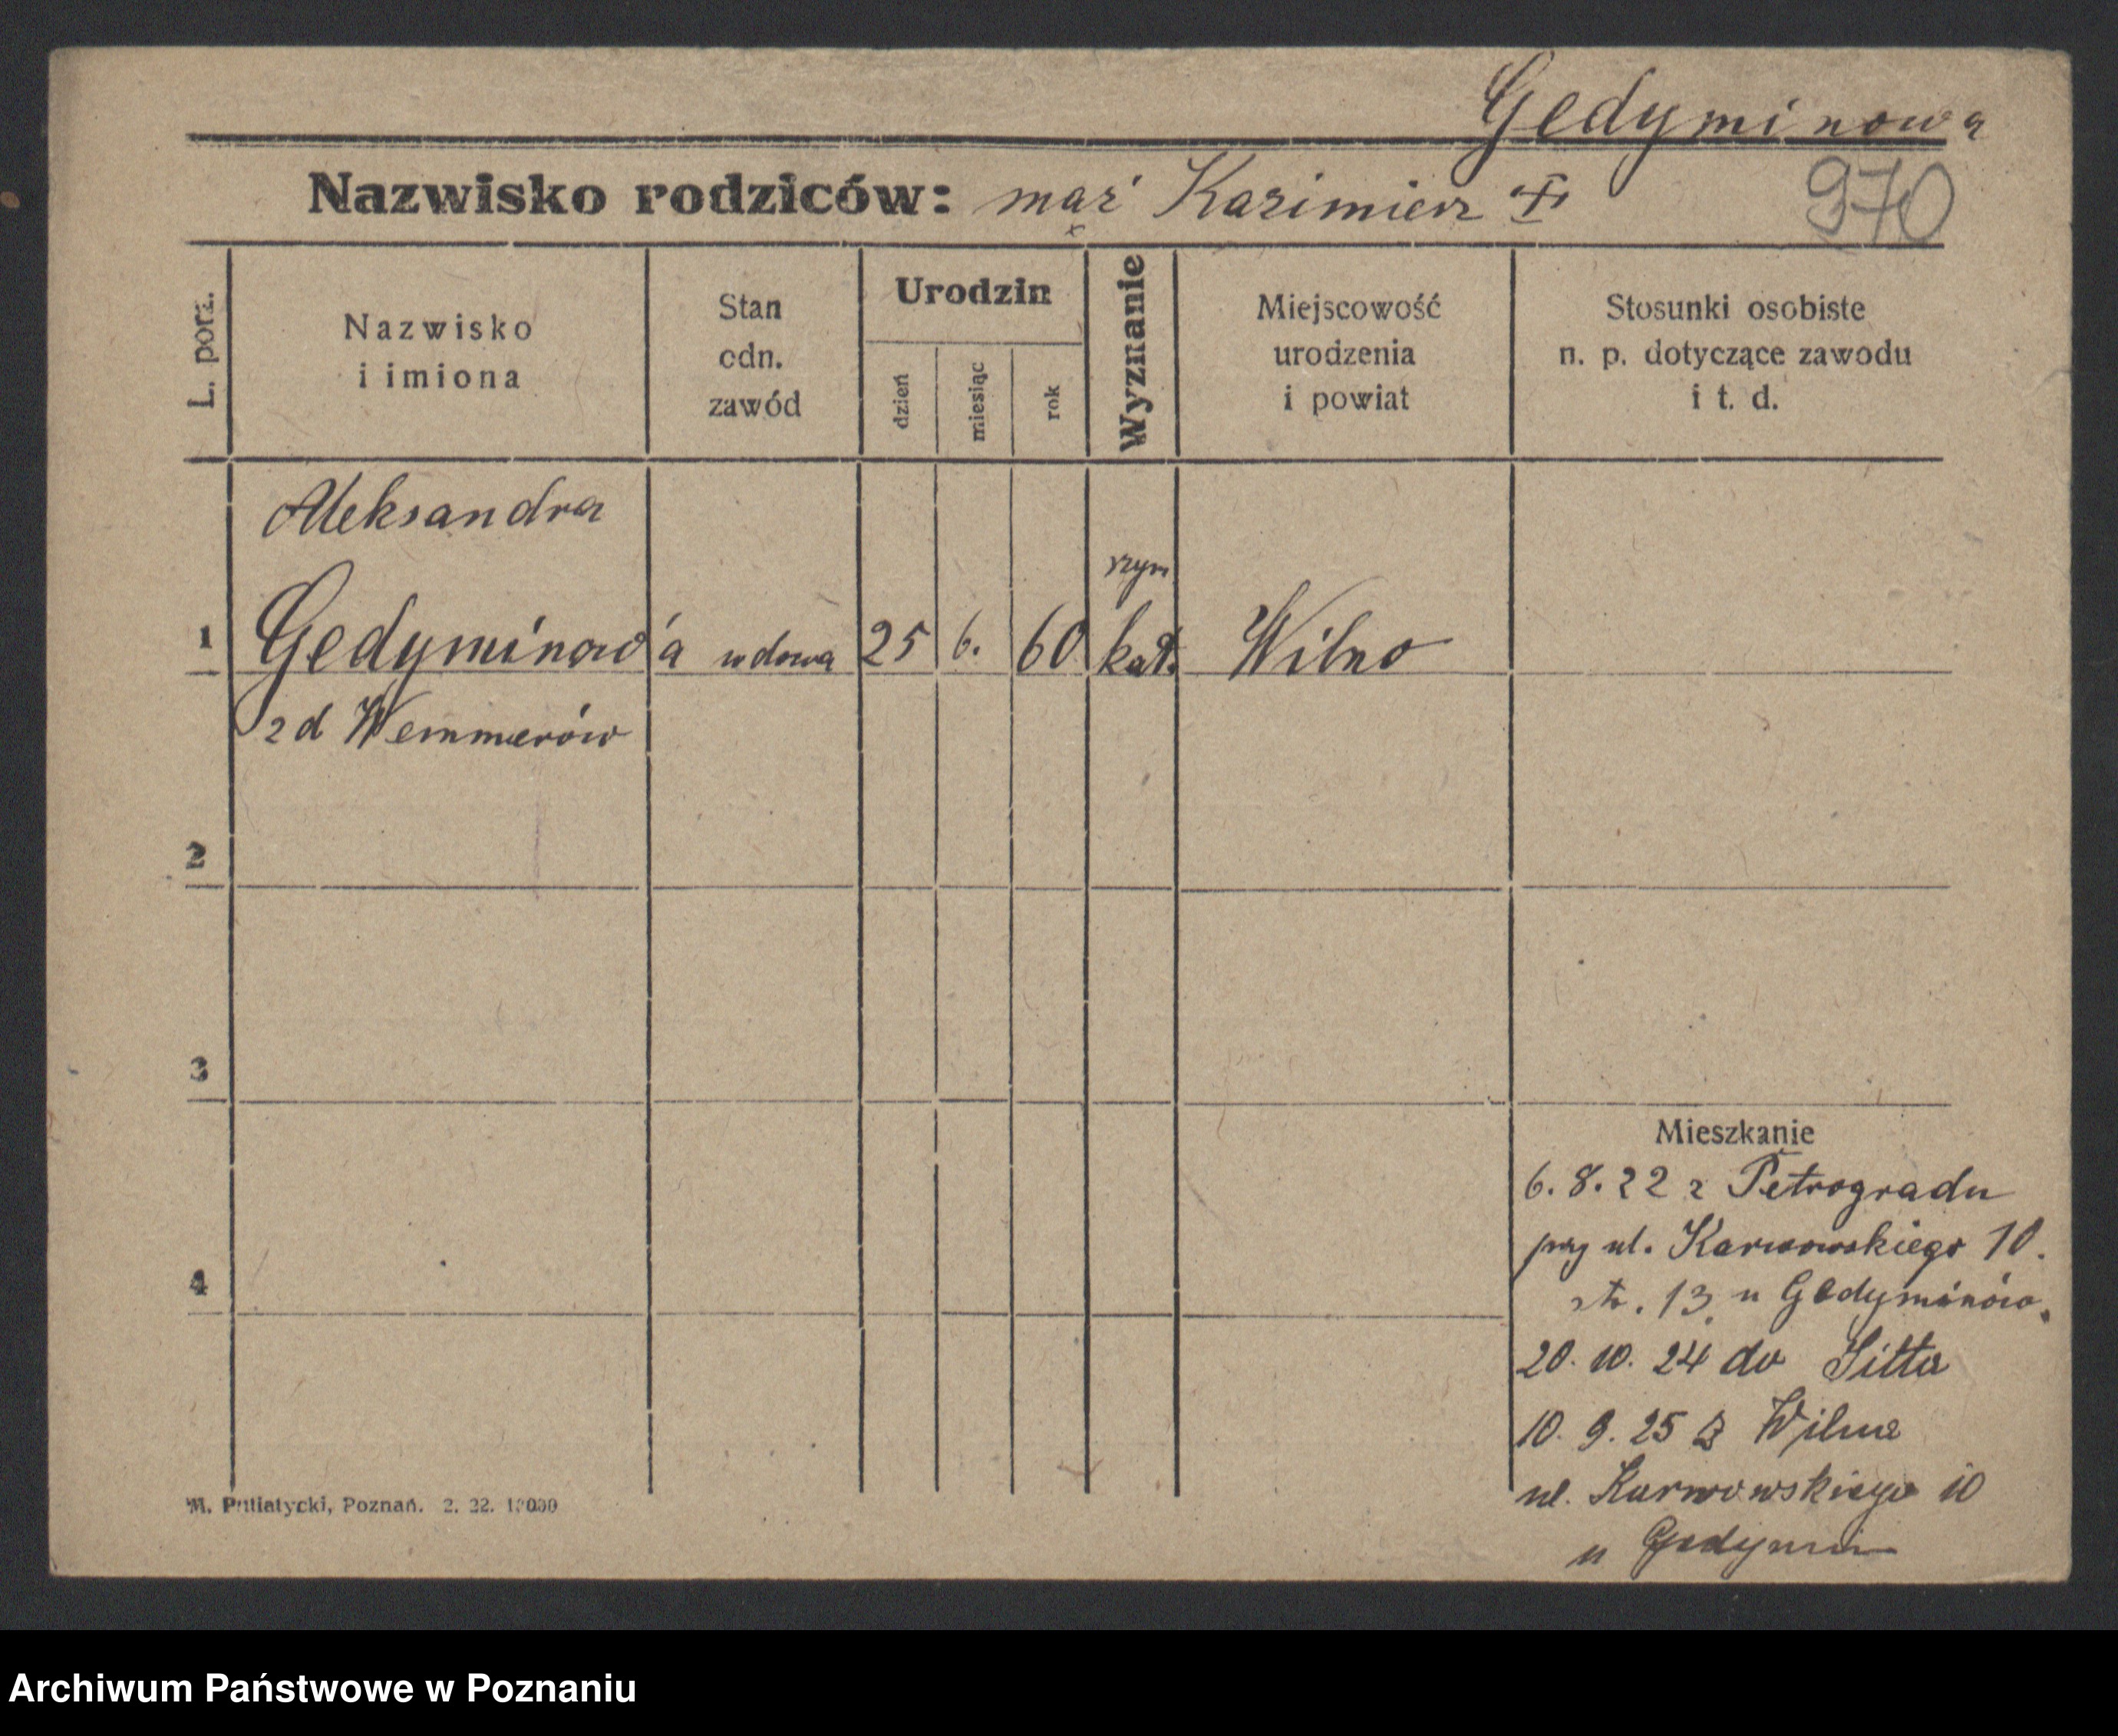 Gedyminowa
Nazwisko rodziców: mąż Kazimierz ✝
970
L. porz.
Nazwisko
i imiona
Stan
odn.
zawód
Urodzin
dzień
miesiąc
rok
Wyznanie
Miejscowość
urodzenia
i powiat
Stosunki osobiste
n. p. dotyczące zawodu
i t. d.
Aleksandra
rzym
1 Gedyminowa wdowa 25 6. 60 kat. Wilno
z d Wemmerów
2
3
4
Mieszkanie
6. 8. 22 z Petrogradu
przy ul. Karwowskiego 10.
str. 13 u Gedyminów.
20. 10. 24 do
10. 9. 25 z Wilna
ul. Karwowskiego 10
u Gedymin
M. Putiatycki, Poznań. 2. 22.
Archiwum Państwowe w Poznaniu